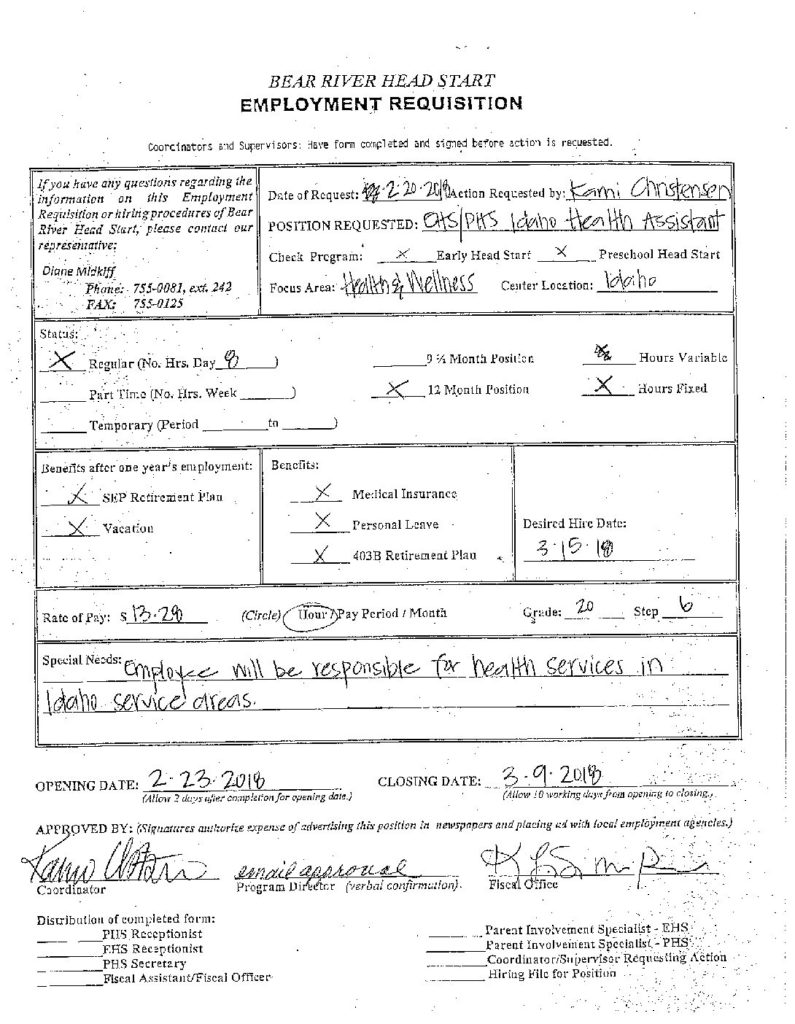 BEAR RIVER HEAD START
EMPLOYMENT REQUISITION
Coordinators and Supervisors: Have form completed and signed before action is requested.
If you have any questions regarding the
information on this Employment
Requisition or hiring procedures of Bear
River Head Start, please contact our
representative:
Diane Midkiff
Phone: 755-0081, ext. 242
FAX: 755-0125
Date of Request: 2-20-2018 Action Requested by: Kami Christensen
POSITION REQUESTED: EHS/PHS Idaho Health Assistant
Check Program: X Early Head Start X Preschool Head Start
Focus Area: Health & Wellness Center Location: Idaho
Status:
X Regular (No. Hrs. Day 8 ) 9 ½ Month Position Hours Variable
Part Time (No. Hrs. Week ) X 12 Month Position X Hours Fixed
Temporary (Period to )
Benefits after one year's employment:
X SEP Retirement Plan
X Vacation
Benefits:
X Medical Insurance
X Personal Leave
X 403B Retirement Plan
Desired Hire Date:
3-15-18
Rate of Pay: $ 13.28 (Circle) Hour / Pay Period / Month Grade: 20 Step 6
Special Needs: Employee will be responsible for health services in
Idaho service areas.
OPENING DATE: 2-23-2018 CLOSING DATE: 3-9-2018
(Allow 2 days after completion for opening date.) (Allow 10 working days from opening to closing.)
APPROVED BY: (Signatures authorize expense of advertising this position in newspapers and placing ad with local employment agencies.)
email approval
Coordinator Program Director (verbal confirmation) Fiscal Office
Distribution of completed form:
PHS Receptionist
EHS Receptionist
PHS Secretary
Fiscal Assistant/Fiscal Officer
Parent Involvement Specialist - EHS
Parent Involvement Specialist - PHS
Coordinator/Supervisor Requesting Action
Hiring File for Position